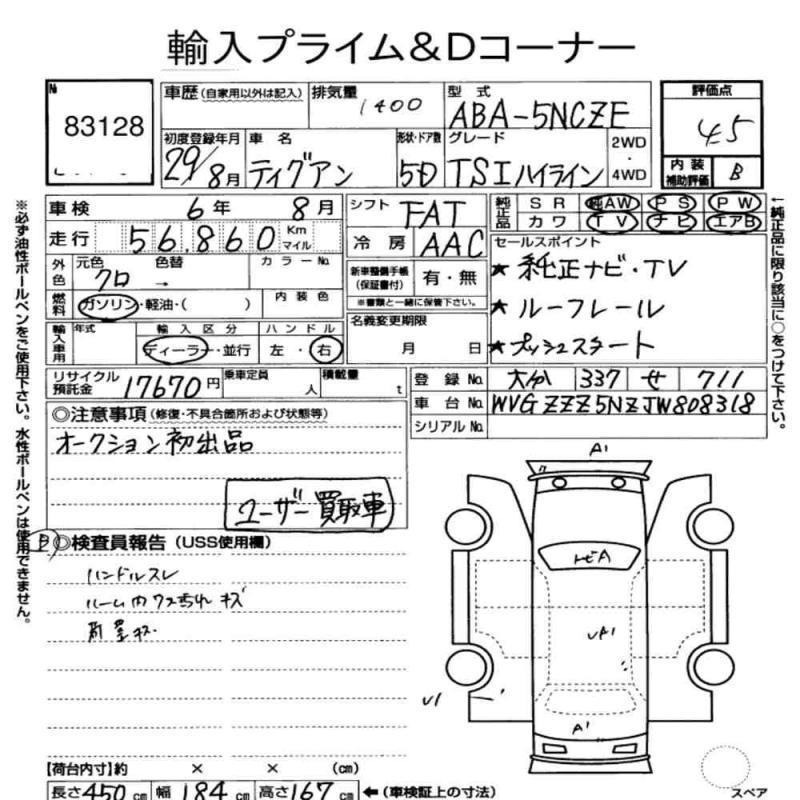 輸入プライム&Dコーナー
№ 83128
車歴(自家用以外は記入) 排気量 1400 型式 ABA-5NCZE
評価点 4.5
初度登録年月 29/8月 車名 ティグアン 形状・ドア数 5D グレード TSIハイライン 2WD・4WD
内装補助評価 B
車検 6年 8月 シフト FAT 純正品 SR 純AW PS PW
カワ TV ナビ エアB
走行 56,860 Km マイル 冷房 AAC セールスポイント
外色 元色 クロ 色替 → カラーNo. 新車整備手帳(保証書付) 有・無 ★純正ナビ・TV
※書類と一緒に保管下さい。
燃料 ガソリン・軽油・( ) 内装色 ★ルーフレール
輸入車用 年式 輸入区分 ディーラー・並行 ハンドル 左・右 名義変更期限 月 日 ★プッシュスタート
リサイクル預託金 17670円 乗車定員 人 積載量 t
登録No. 大分 337 せ 711
車台No. WVGZZZ5NZJW808318
シリアルNo.
◎注意事項(修復・不具合箇所および状態等)
オークション初出品
ユーザー買取車
B ◎検査員報告(USS使用欄)
ハンドルスレ
ルーム内ウスちれキズ
※必ず油性ボールペンをご使用下さい。水性ボールペンは使用できません。
↑純正品に限り該当に○をつけて下さい。
A1
トビA
A1
A1
【荷台内寸】約 × × (cm)
長さ450cm 幅184cm 高さ167cm ←(車検証上の寸法)
スペア